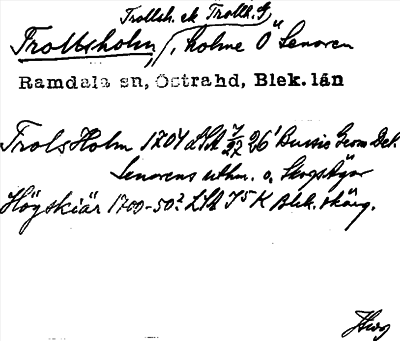 Trollsh. ek Trollh. G
Trollsholm, holme O Senoren
Ramdala sn, Östrahd, Blek. län
Trols Holm 1704 26 Geom Dek.
Senorens uthm. o. Skogskär
Högskiär 1700-50? LSA K Blek. skärg.